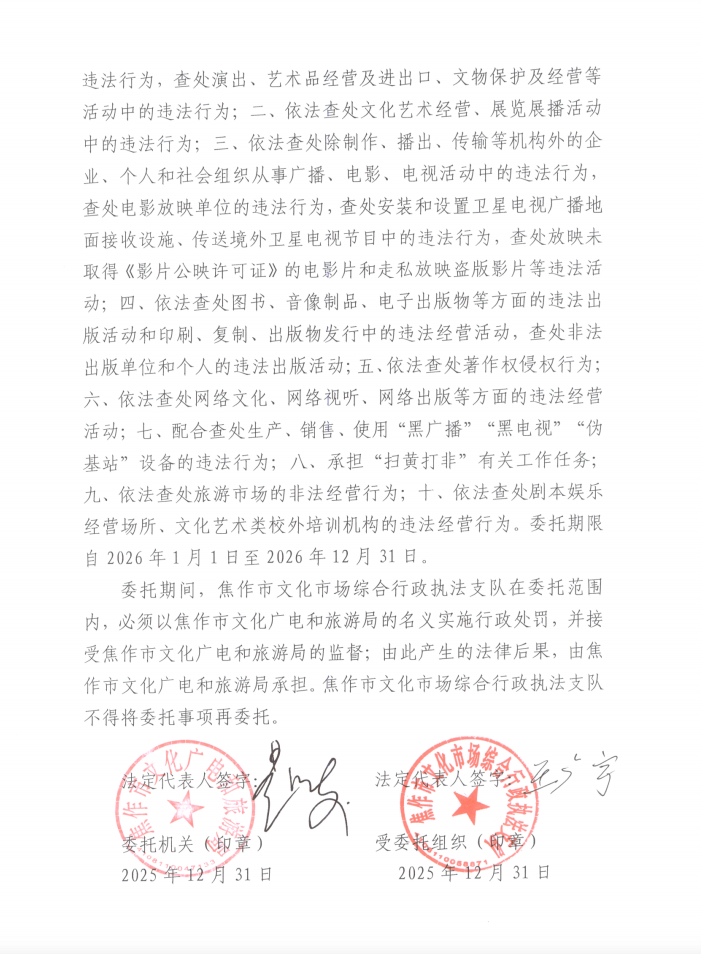 违法行为，查处演出、艺术品经营及进出口、文物保护及经营等
活动中的违法行为；二、依法查处文化艺术经营、展览展播活动
中的违法行为；三、依法查处除制作、播出、传输等机构外的企
业、个人和社会组织从事广播、电影、电视活动中的违法行为，
查处电影放映单位的违法行为，查处安装和设置卫星电视广播地
面接收设施、传送境外卫星电视节目中的违法行为，查处放映未
取得《影片公映许可证》的电影片和走私放映盗版影片等违法活
动；四、依法查处图书、音像制品、电子出版物等方面的违法出
版活动和印刷、复制、出版物发行中的违法经营活动，查处非法
出版单位和个人的违法出版活动；五、依法查处著作权侵权行为；
六、依法查处网络文化、网络视听、网络出版等方面的违法经营
活动；七、配合查处生产、销售、使用“黑广播”“黑电视”“伪
基站”设备的违法行为；八、承担“扫黄打非”有关工作任务；
九、依法查处旅游市场的非法经营行为；十、依法查处剧本娱乐
经营场所、文化艺术类校外培训机构的违法经营行为。委托期限
自 2026 年 1 月 1 日至 2026 年 12 月 31 日。
委托期间，焦作市文化市场综合行政执法支队在委托范围
内，必须以焦作市文化广电和旅游局的名义实施行政处罚，并接
受焦作市文化广电和旅游局的监督；由此产生的法律后果，由焦
作市文化广电和旅游局承担。焦作市文化市场综合行政执法支队
不得将委托事项再委托。
法定代表人签字：
委托机关（印章）
2025 年 12 月 31 日
焦作市文化广电和旅游局
法定代表人签字：
受委托组织（印章）
2025 年 12 月 31 日
焦作市文化市场综合行政执法支队